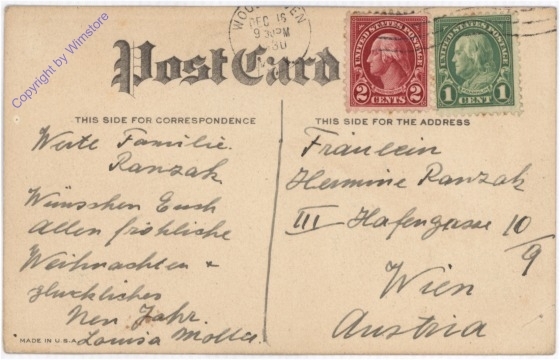 Copyright by Wimstore
DEC 16
9 30PM
Post Card
UNITED STATES POSTAGE
2 CENTS 2
UNITED STATES POSTAGE
1 CENT 1
THIS SIDE FOR CORRESPONDENCE
THIS SIDE FOR THE ADDRESS
Werte Familie.
Ranzak
Wünschen Euch
Allen fröhliche
Weihnachten +
glückliches
Neu Jahr.
Louisa
MADE IN U.S.A.
Fräulein
Hermine Ranzak
III Hafengasse 10/9
Wien
Austria